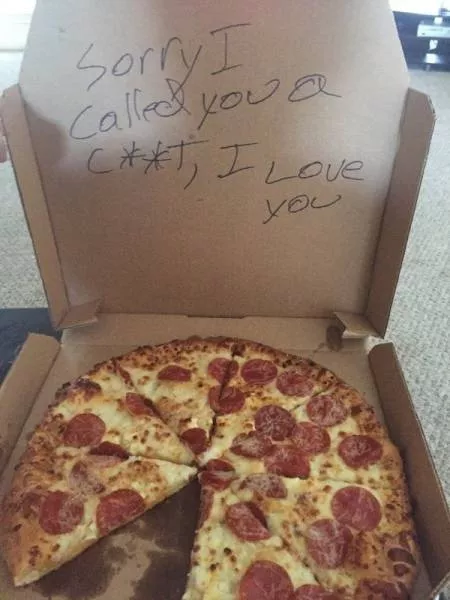 Sorry I
Called you a
C**T, I Love
you